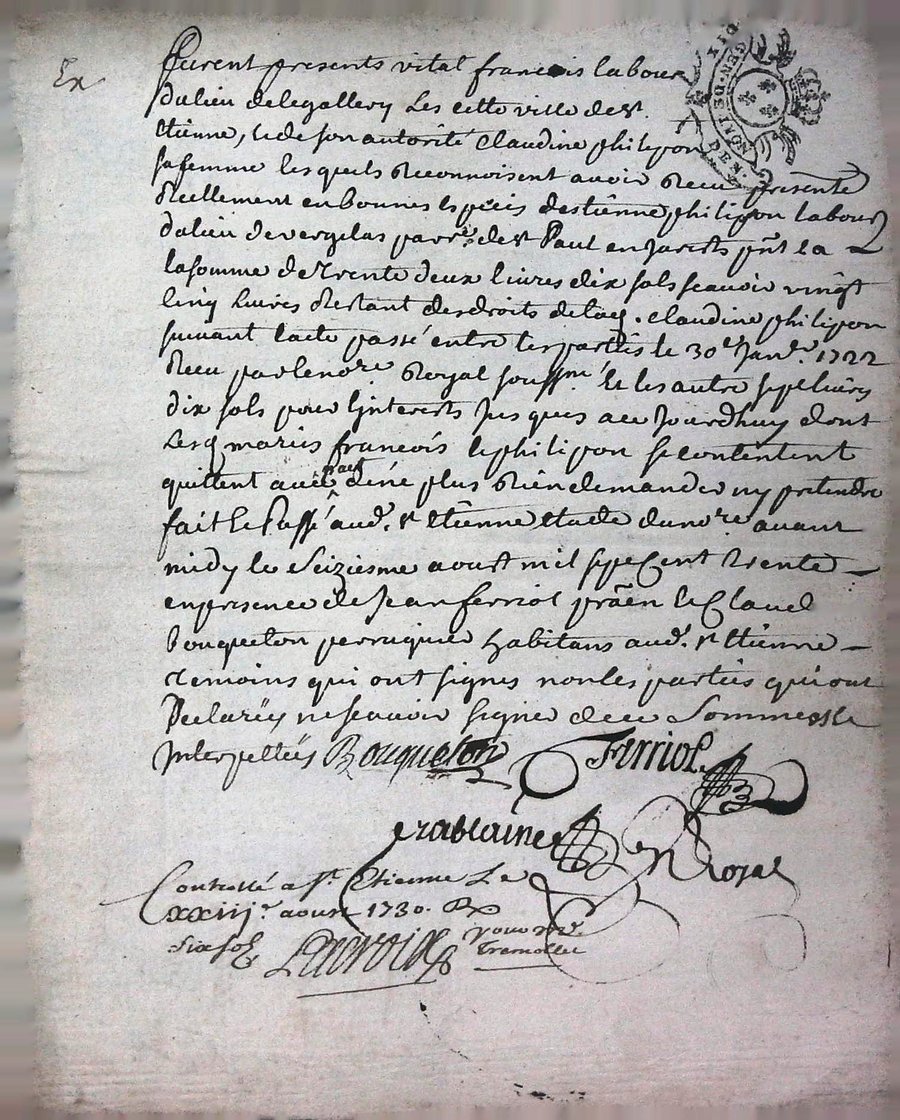 Ex
furent presents vital francois labour
du lieu de legallery Les cette ville de st
etienne, et de son autorité claudine philipon
sa femme lesquels Reconnoisent avoir Receu presente
Reellement en bonnes especes destienne philipon labour
du lieu de vergelas parr.e de st Paul en Jarests pnt la
la somme de Trente deux livres dix sols scavoir vingt
cinq livres Restant des droits de lad. claudine philipon
suivant lacte passé entre les parties le 30e Janr. 1722
Receu par le nore Royal soussné Et les autre sept livres
dix sols pour linterests Jusques au Jourdhuy dont
Lesd mariés francois et philipon se contentent
quittent avec pact de ne plus Rien demander ny pretendre
fait et Passé aud. st etienne etude du nore avant
midy le Seiziesme aoust mil sept Cent Trente
en presence de Jean ferriol et Claud
Bouqueton perruquier habitans aud. st etienne
temoins qui ont signes non les parties qui ont
Declarés ne scavoir signer de ce Sommes et
Interpellées Bouqueton Ferriol
n Royal
Controllé a St. Etienne Le
xxiije aoust 1730. Rx
six sols Lacroix
GEN DE LION
DIX DEN